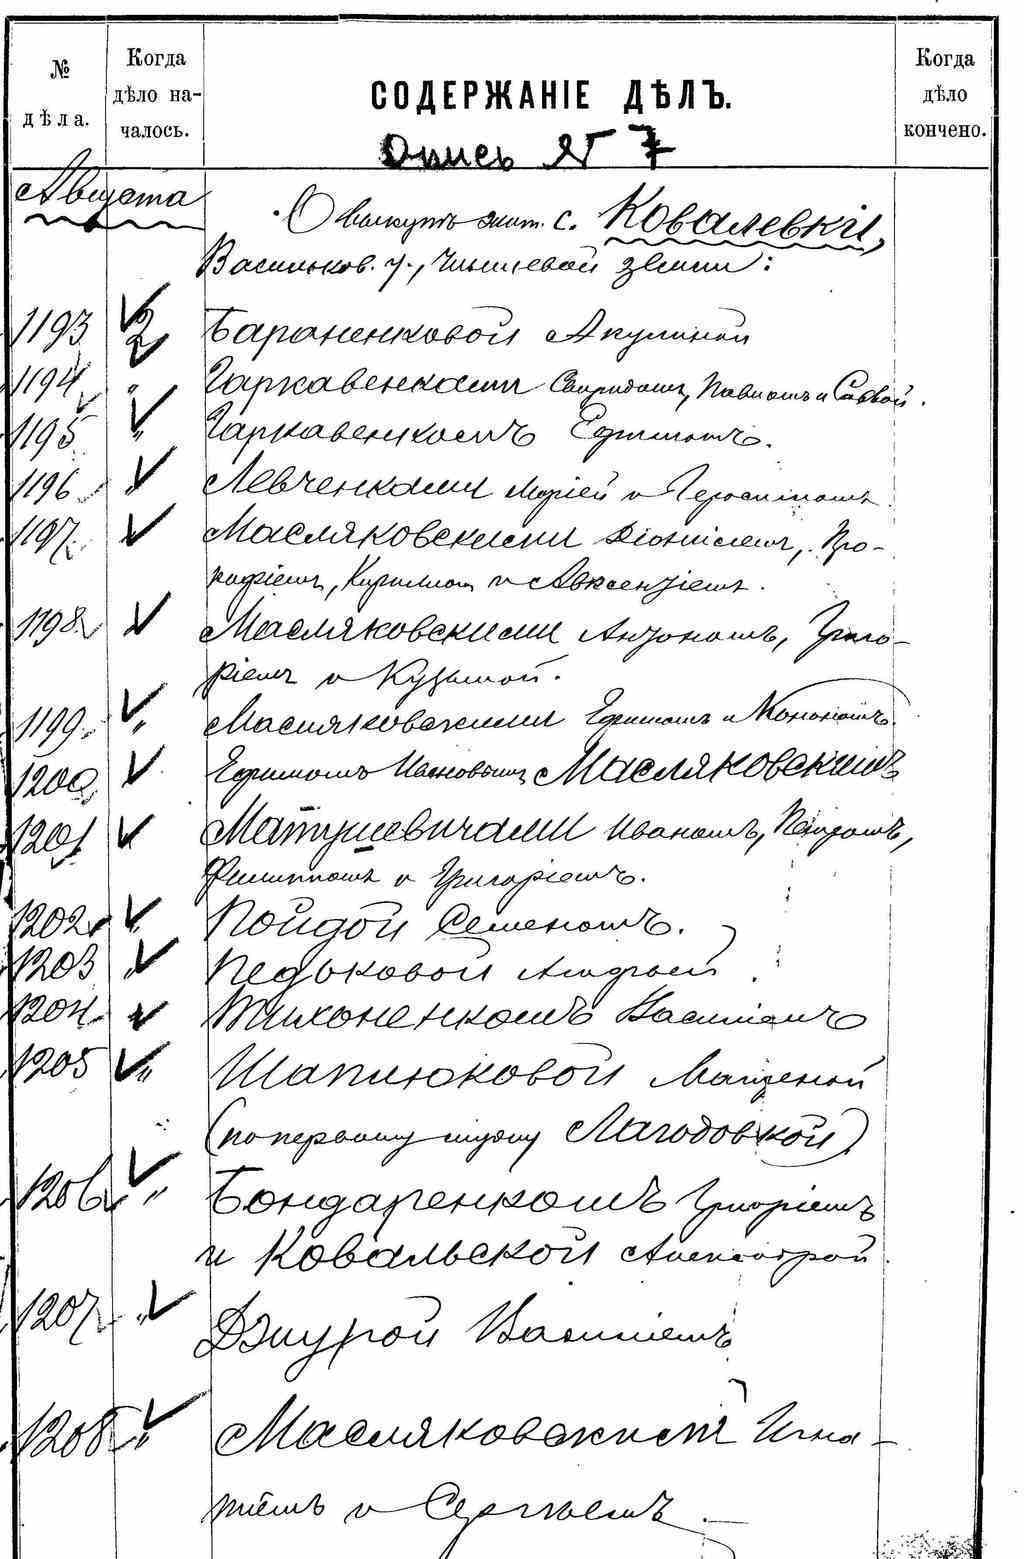 № дѣла.
Когда дѣло на-чалось.
СОДЕРЖАНІЕ ДѢЛЪ.
Когда дѣло кончено.
Опись № 7
Августа
О выкупѣ жит. с. Ковалевки,
Васильков. у., чиншевой земли:
1193 2 Бараненковой Акулиной
1194 " Гаркавенками Свиридомъ, Павломъ и Саввой.
1195 " Гаркавенкомъ Ефимомъ.
1196 " Левченками Маріей и Герасимомъ
1197 " Масляковскими Діонисіемъ, Про-
кофіемъ, Кирилломъ и Авксентіемъ.
1198 " Масляковскими Антономъ, Григо-
ріемъ и Кузьмой.
1199 " Масляковскими Ефимомъ и Конономъ.
1200 " Ефимомъ Ивановымъ Масляковскимъ
1201 " Матушевичами Иваномъ, Петромъ,
Филиппомъ и Григоріемъ.
1202 " Пойдой Семеномъ.
1203 " Педьковой
1204 " Тихоненкомъ Василіемъ
1205 " Шаплюковой Матреной
(по первому мужу Лагодовской)
1206 " Бондаренкомъ Григоріемъ
и Ковальской Александрой.
1207 " Джурой Василіемъ
1208 " Масляковскими Игна-
тіемъ и Сергѣемъ.